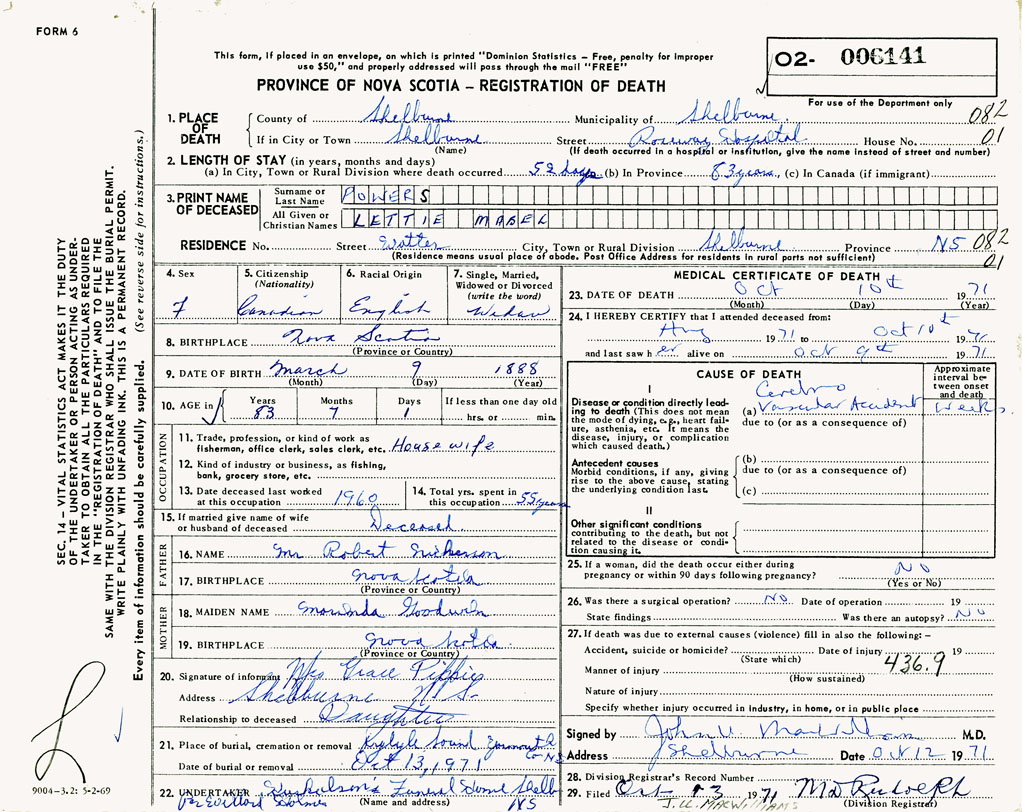 FORM 6
This form, if placed in an envelope, on which is printed "Dominion Statistics – Free, penalty for improper
use $50," and properly addressed will pass through the mail "FREE"
PROVINCE OF NOVA SCOTIA – REGISTRATION OF DEATH
02- 006141
For use of the Department only
1. PLACE OF DEATH County of Shelburne Municipality of Shelburne. 082
If in City or Town Shelburne Street Roseway Hospital House No. 01
(Name) (If death occurred in a hospital or institution, give the name instead of street and number)
2. LENGTH OF STAY (in years, months and days)
(a) In City, Town or Rural Division where death occurred 52 days (b) In Province 83 years, (c) In Canada (if immigrant)
3. PRINT NAME OF DECEASED Surname or Last Name POWERS
All Given or Christian Names LETTIE MABEL
RESIDENCE No. Street Water City, Town or Rural Division Shelburne Province NS 082
(Residence means usual place of abode. Post Office Address for residents in rural parts not sufficient) 01
4. Sex F
5. Citizenship (Nationality) Canadian
6. Racial Origin English
7. Single, Married, Widowed or Divorced (write the word) Widow
8. BIRTHPLACE Nova Scotia
(Province or Country)
9. DATE OF BIRTH March 9 1888
(Month) (Day) (Year)
10. AGE in Years 83 Months 7 Days 1 If less than one day old hrs. or min.
OCCUPATION
11. Trade, profession, or kind of work as
fisherman, office clerk, sales clerk, etc. House wife
12. Kind of industry or business, as fishing,
bank, grocery store, etc.
13. Date deceased last worked at this occupation 1960
14. Total yrs. spent in this occupation 55 years
15. If married give name of wife
or husband of deceased Deceased.
FATHER
16. NAME Mr Robert Nickerson
17. BIRTHPLACE Nova Scotia
(Province or Country)
MOTHER
18. MAIDEN NAME Goodwin
19. BIRTHPLACE Nova Scotia
(Province or Country)
20. Signature of informant Mrs Grace
Address Shelburne N.S.
Relationship to deceased Daughter
21. Place of burial, cremation or removal Sound
Date of burial or removal Oct 13, 1971
22. UNDERTAKER Funeral Home Shelb
(Name and address) NS
MEDICAL CERTIFICATE OF DEATH
23. DATE OF DEATH Oct 10th 1971
(Month) (Day) (Year)
24. I HEREBY CERTIFY that I attended deceased from:
Aug 1971 to Oct 10th 1971
and last saw her alive on Oct 9th 1971
CAUSE OF DEATH
Approximate interval between onset and death
I
Disease or condition directly leading to death (This does not mean the mode of dying, e.g., heart failure, asthenia, etc. It means the disease, injury, or complication which caused death.)
(a) Cerebro Vascular Accident Weeks.
due to (or as a consequence of)
Antecedent causes
Morbid conditions, if any, giving rise to the above cause, stating the underlying condition last.
(b)
due to (or as a consequence of)
(c)
II
Other significant conditions
contributing to the death, but not related to the disease or condition causing it.
25. If a woman, did the death occur either during
pregnancy or within 90 days following pregnancy? NO
(Yes or No)
26. Was there a surgical operation? NO Date of operation 19
State findings Was there an autopsy? NO
27. If death was due to external causes (violence) fill in also the following: –
Accident, suicide or homicide? Date of injury 19
(State which) 436.9
Manner of injury
(How sustained)
Nature of injury
Specify whether injury occurred in industry, in home, or in public place
Signed by John U. MacWilliam M.D.
Address Shelburne Date Oct 12 1971
28. Division Registrar's Record Number
29. Filed Oct 13 1971 Rudolph
J.U. MACWILLIAMS (Division Registrar)
SEC. 14 – VITAL STATISTICS ACT MAKES IT THE DUTY
OF THE UNDERTAKER OR PERSON ACTING AS UNDER-
TAKER TO OBTAIN ALL THE PARTICULARS REQUIRED
IN THE "REGISTRATION OF DEATH" AND TO FILE THE
SAME WITH THE DIVISION REGISTRAR WHO SHALL ISSUE THE BURIAL PERMIT.
WRITE PLAINLY WITH UNFADING INK. THIS IS A PERMANENT RECORD.
Every item of information should be carefully supplied. (See reverse side for instructions.)
9004–3.2: 5-2-69